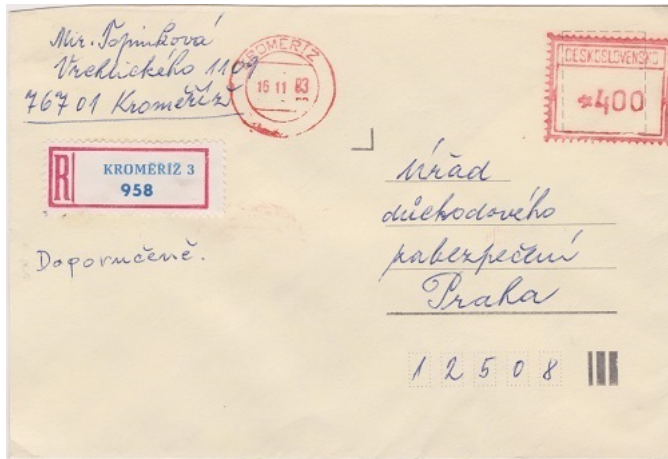 Mir. Topinková
Vrchlického 1109
76701 Kroměříž
KROMĚŘÍŽ
16 11 83
ČESKOSLOVENSKO
*400
R
KROMĚŘÍŽ 3
958
Doporučeně.
Úřad
důchodového
zabezpečení
Praha
12508